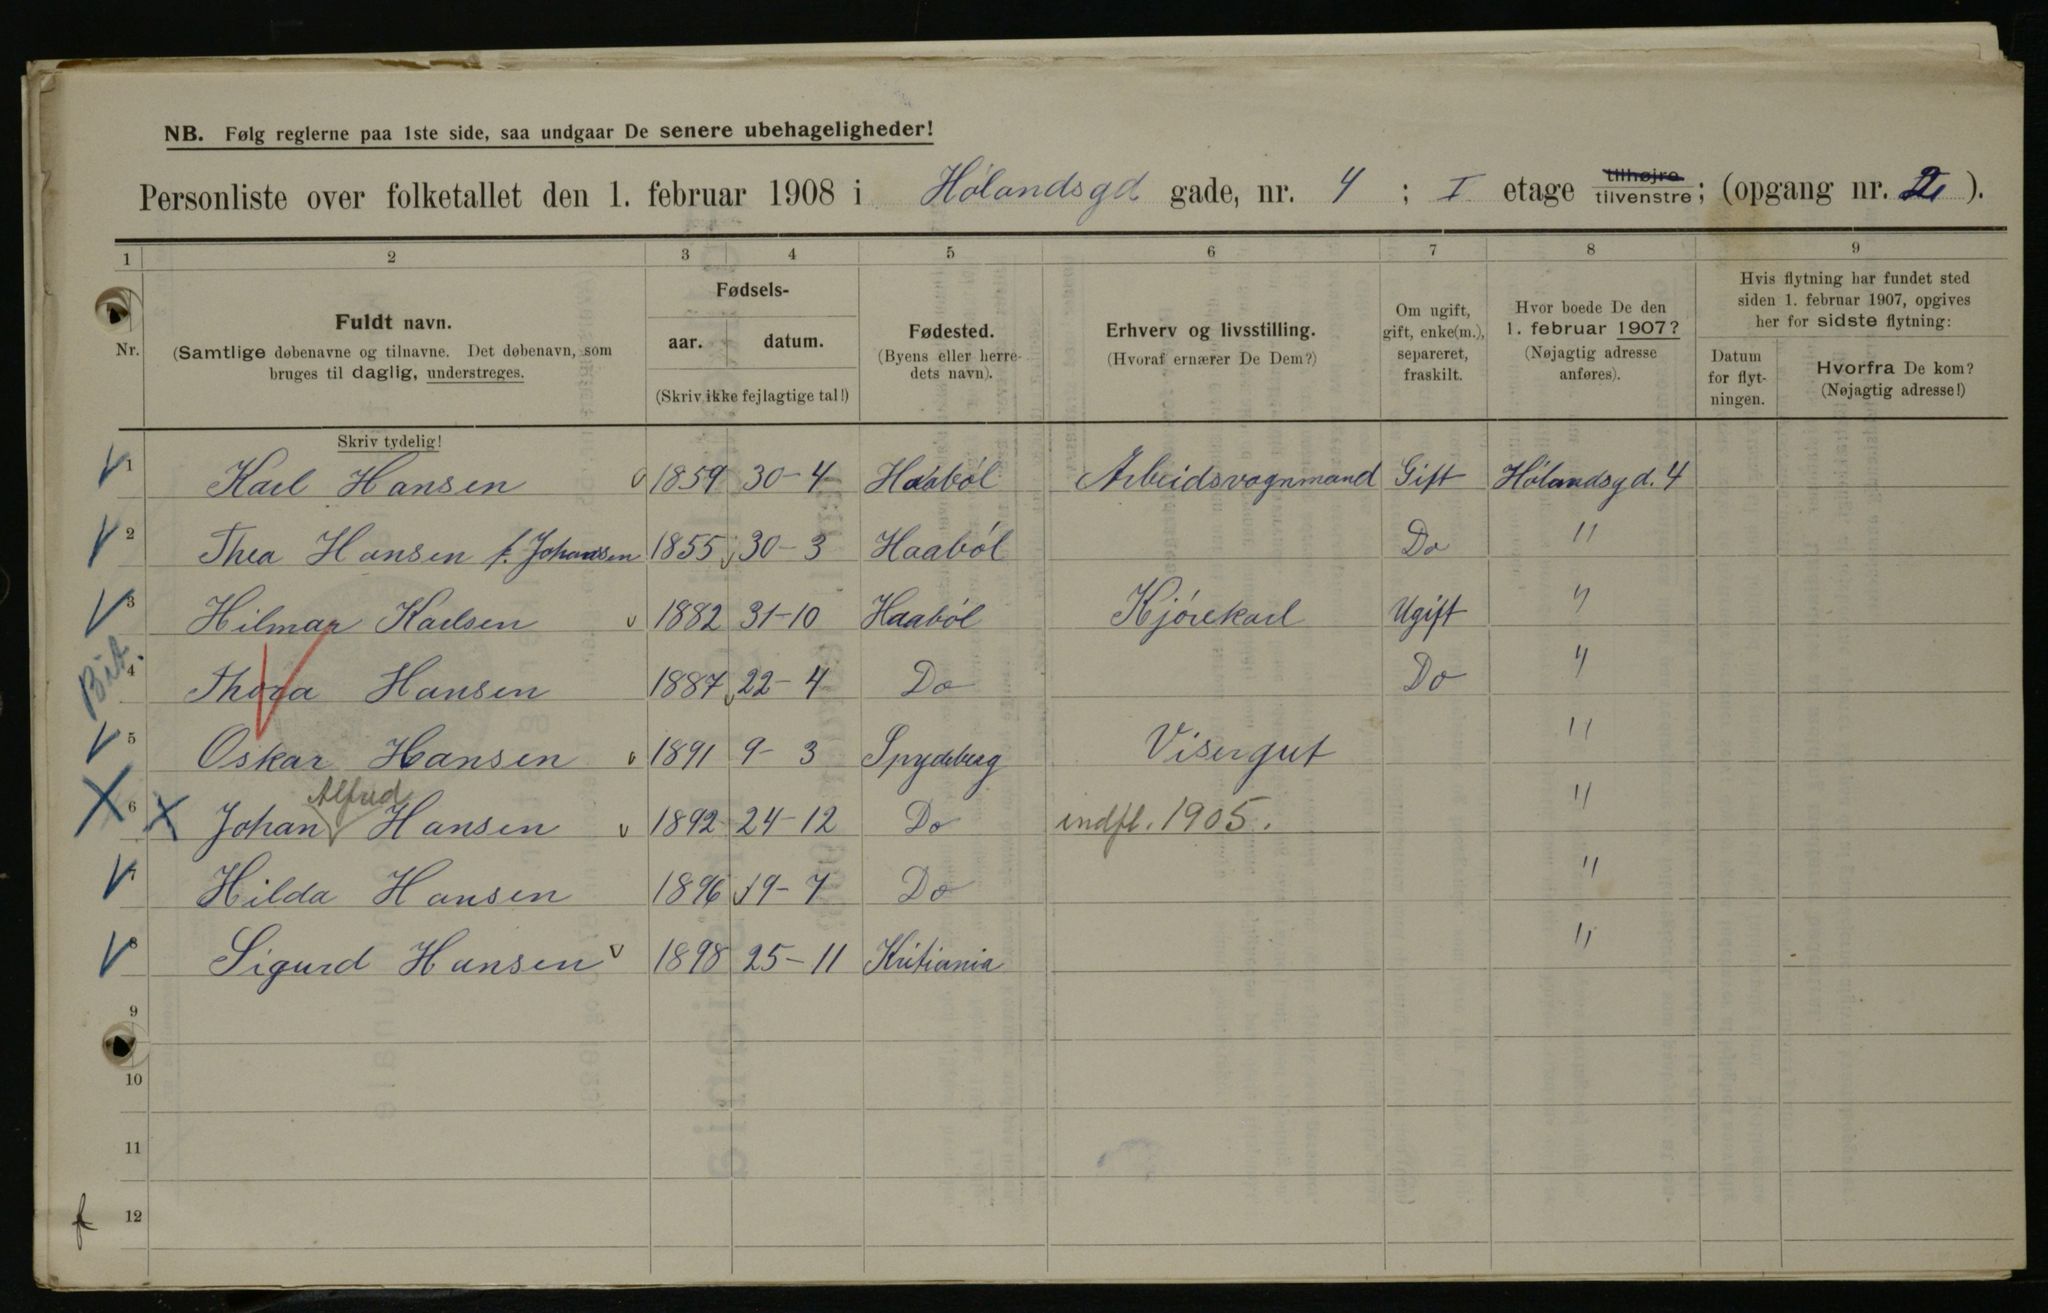 NB. Følg reglerne paa 1ste side, saa undgaar De senere ubehageligheder!
Personliste over folketallet den 1. februar 1908 i Hölandsgd gade, nr. 4 ; I etage tilhøjre tilvenstre; (opgang nr. 2 ).
1 2 3 4 5 6 7 8 9
Nr.
Fuldt navn.
(Samtlige døbenavne og tilnavne. Det døbenavn, som
bruges til daglig, understreges.
Skriv tydelig!
Fødsels-
aar. datum.
(Skriv ikke fejlagtige tal!)
Fødested.
(Byens eller herre-
dets navn).
Erhverv og livsstilling.
(Hvoraf ernærer De Dem?)
Om ugift,
gift, enke(m.),
separeret,
fraskilt.
Hvor boede De den
1. februar 1907?
(Nøjagtig adresse
anføres).
Hvis flytning har fundet sted
siden 1. februar 1907, opgives
her for sidste flytning:
Datum
for flyt-
ningen.
Hvorfra De kom?
(Nøjagtig adresse!)
1 Karl Hansen 1859 30-4 Haaböl Arbeidsvognmand Gift Hölandsgd. 4
2 Thea Hansen f. Johanssen 1855 30-3 Haaböl Do "
3 Hilmar Karlsen 1882 31-10 Haaböl Kjörekarl Ugift "
4 Thora Hansen 1887 22-4 Do Do "
5 Oskar Hansen 1891 9-3 Spydeberg Visergut "
Alfred
6 X Johan Hansen 1892 24-12 Do indfl. 1905. "
7 Hilda Hansen 1896 19-7 Do "
8 Sigurd Hansen 1898 25-11 Kritiania "
9
10
11
12